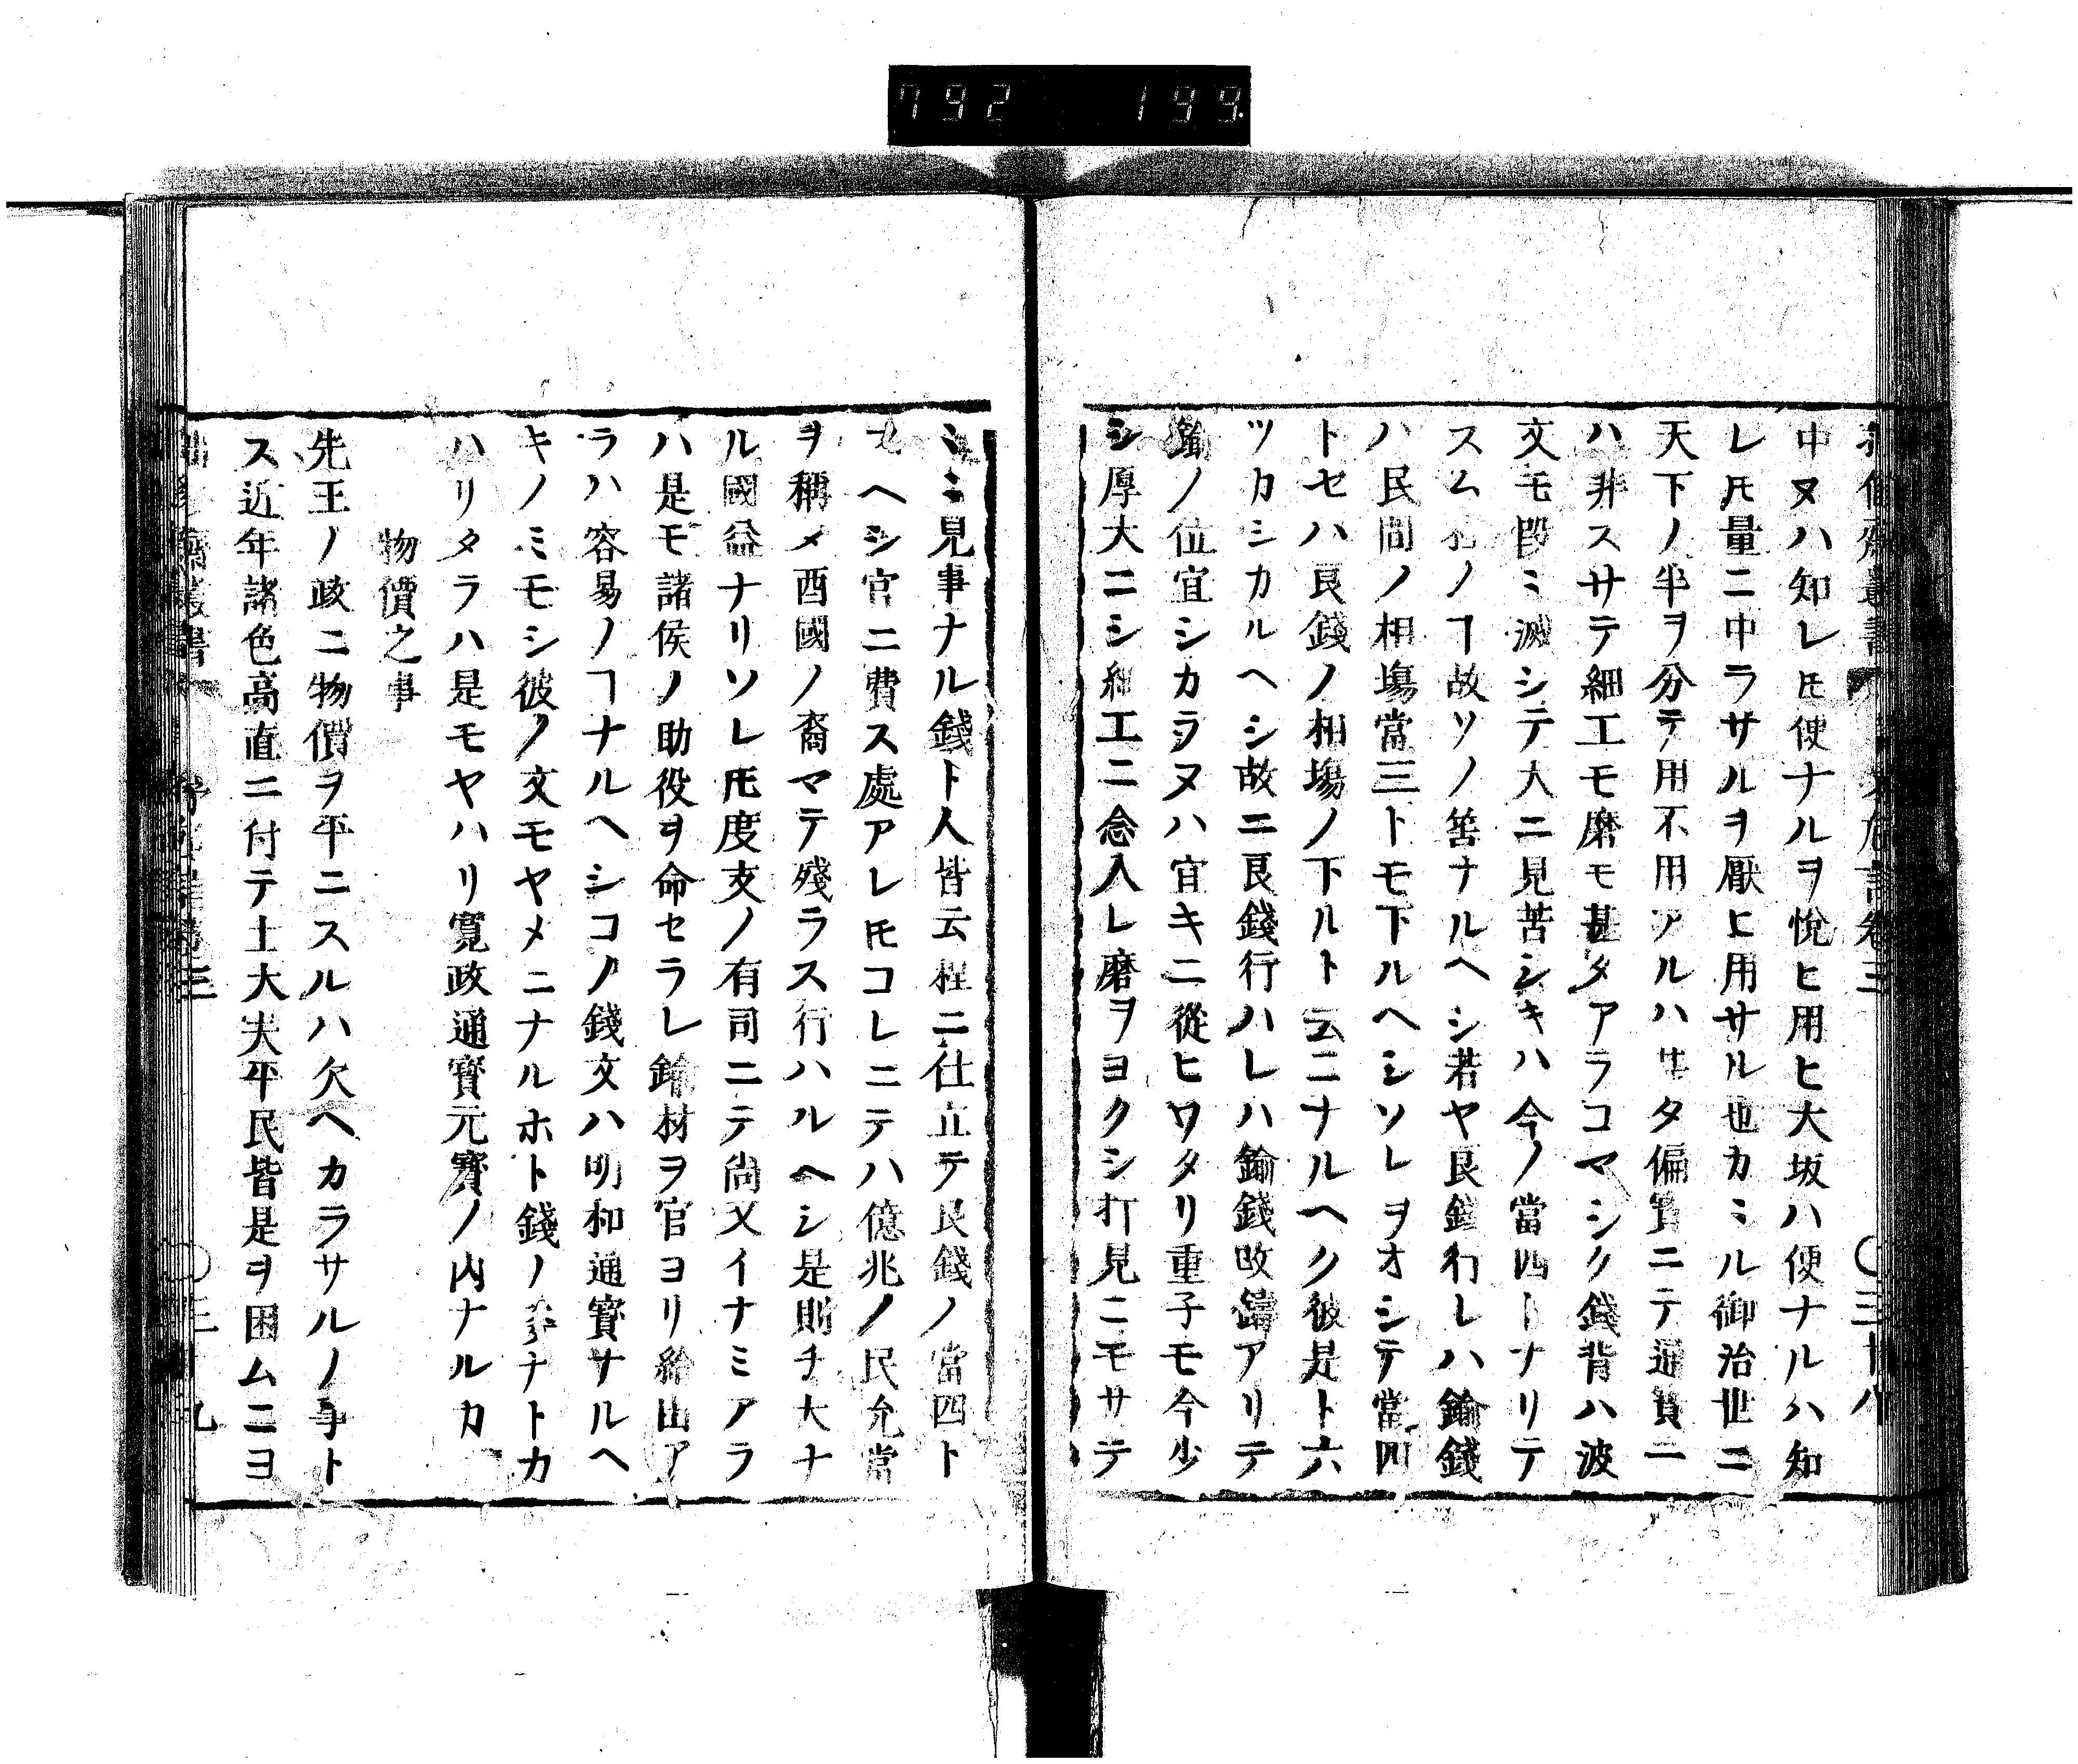 792 199
中ヌハ知レ𪜈便ナルヲ悅ヒ用ヒ大坂ハ便ナルハ知
レ𪜈量ニ中ラサルヲ厭ヒ用サル也カミル御治世ニ
天下ノ半ヲ分テ用不用アルハ生タ偏寳ニテ通寳ニ
ハ非スサテ細工モ磨モ甚タアラコマシク錢背ハ波
文モ毀ミ滅シテ大ニ見苦シキハ今ノ當四トナリテ
スムノヿ故ソノ筈ナルヘシ若ヤ良錢行レハ鍮錢
ハ民間ノ相塲當三トモ下ルヘシソレヲオシテ當四
トセハ良錢ノ相塲ノ下ルト云ニナルヘク彼是ト六
ツカシカルヘシ故ニ良錢行ハレハ鍮錢改鑄アリテ
鍮ノ位宜シカラヌハ宜キニ從ヒワタリ重子モ今少
シ厚大ニシ細工ニ念入レ磨ヲヨクシ打見ニモサテ
ミミ見事ナル錢ト人皆云程ニ仕立テ良錢ノ當四ト
スヘシ官ニ費ス處アレ𪜈コレニテハ億兆ノ民允當
ヲ稱メ酉國ノ裔マテ殘ラス行ハルヘシ是則チ大ナ
ル國益ナリソレ𪜈度支ノ有司ニテ尚又イナミアラ
ハ是モ諸侯ノ助役ヲ命セラレ鍮材ヲ官ヨリ給出ア
ラハ容易ノヿナルヘシコノ錢文ハ明和通寳サルヘ
キノミモシ彼ノ文モヤメニナルホト錢ノナトカ
ハリタラハ是モヤハリ寛政通寳元寳ノ内ナルカ
物價之事
先王ノ政ニ物價ヲ平ニスルハ欠ヘカラサルノ事ト
ス近年諸色高直ニ付テ士大夫平民皆是ヲ困ムニヨ
三十九
三十八